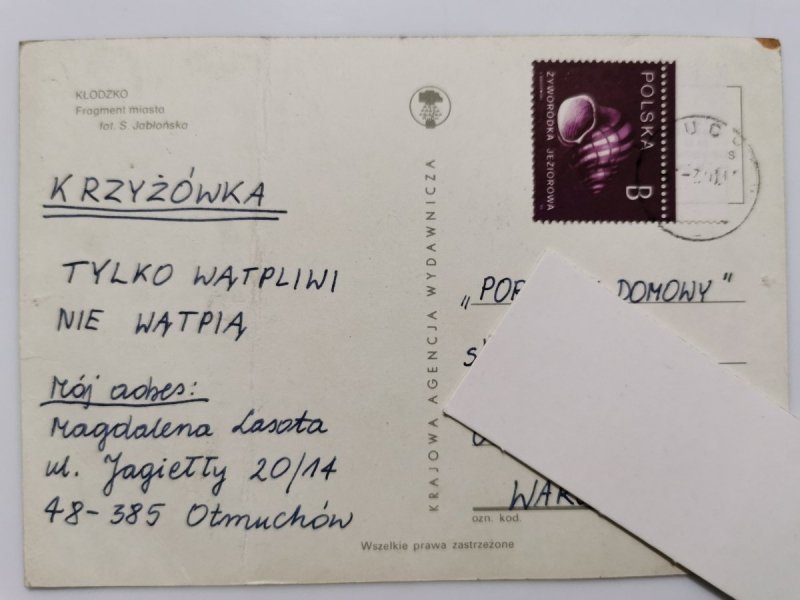 KŁODZKO
Fragment miasta
fot. S. Jabłońska
KRZYŻÓWKA
TYLKO WĄTPLIWI
NIE WĄTPIĄ
Mój adres:
Magdalena Lasota
ul. Jagiełły 20/14
48-385 Otmuchów
KRAJOWA AGENCJA WYDAWNICZA
POLSKA
ŻYWORODKA JEZIOROWA
B
DOMOWY"
ozn. kod.
Wszelkie prawa zastrzeżone